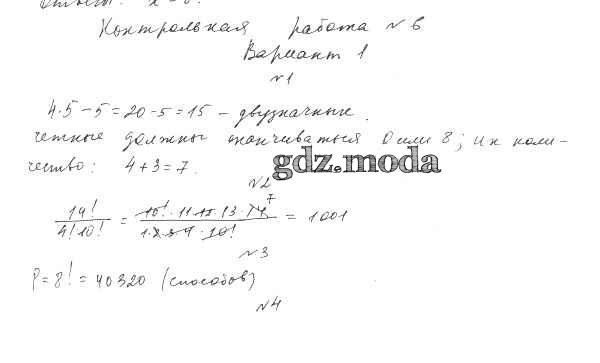 Ответ: x = 0.
Контрольная работа №6
Вариант 1
№1
4·5 – 5 = 20 – 5 = 15 – двузначные.
четные должны оканчиваться 0 или 8; их коли-
чество: 4 + 3 = 7.
gdz.moda
№2
14! / 4!10! = 10!·11·12·13·14 7 / 1·2·3·4·10! = 1001
№3
P = 8! = 40320 (способов)
№4